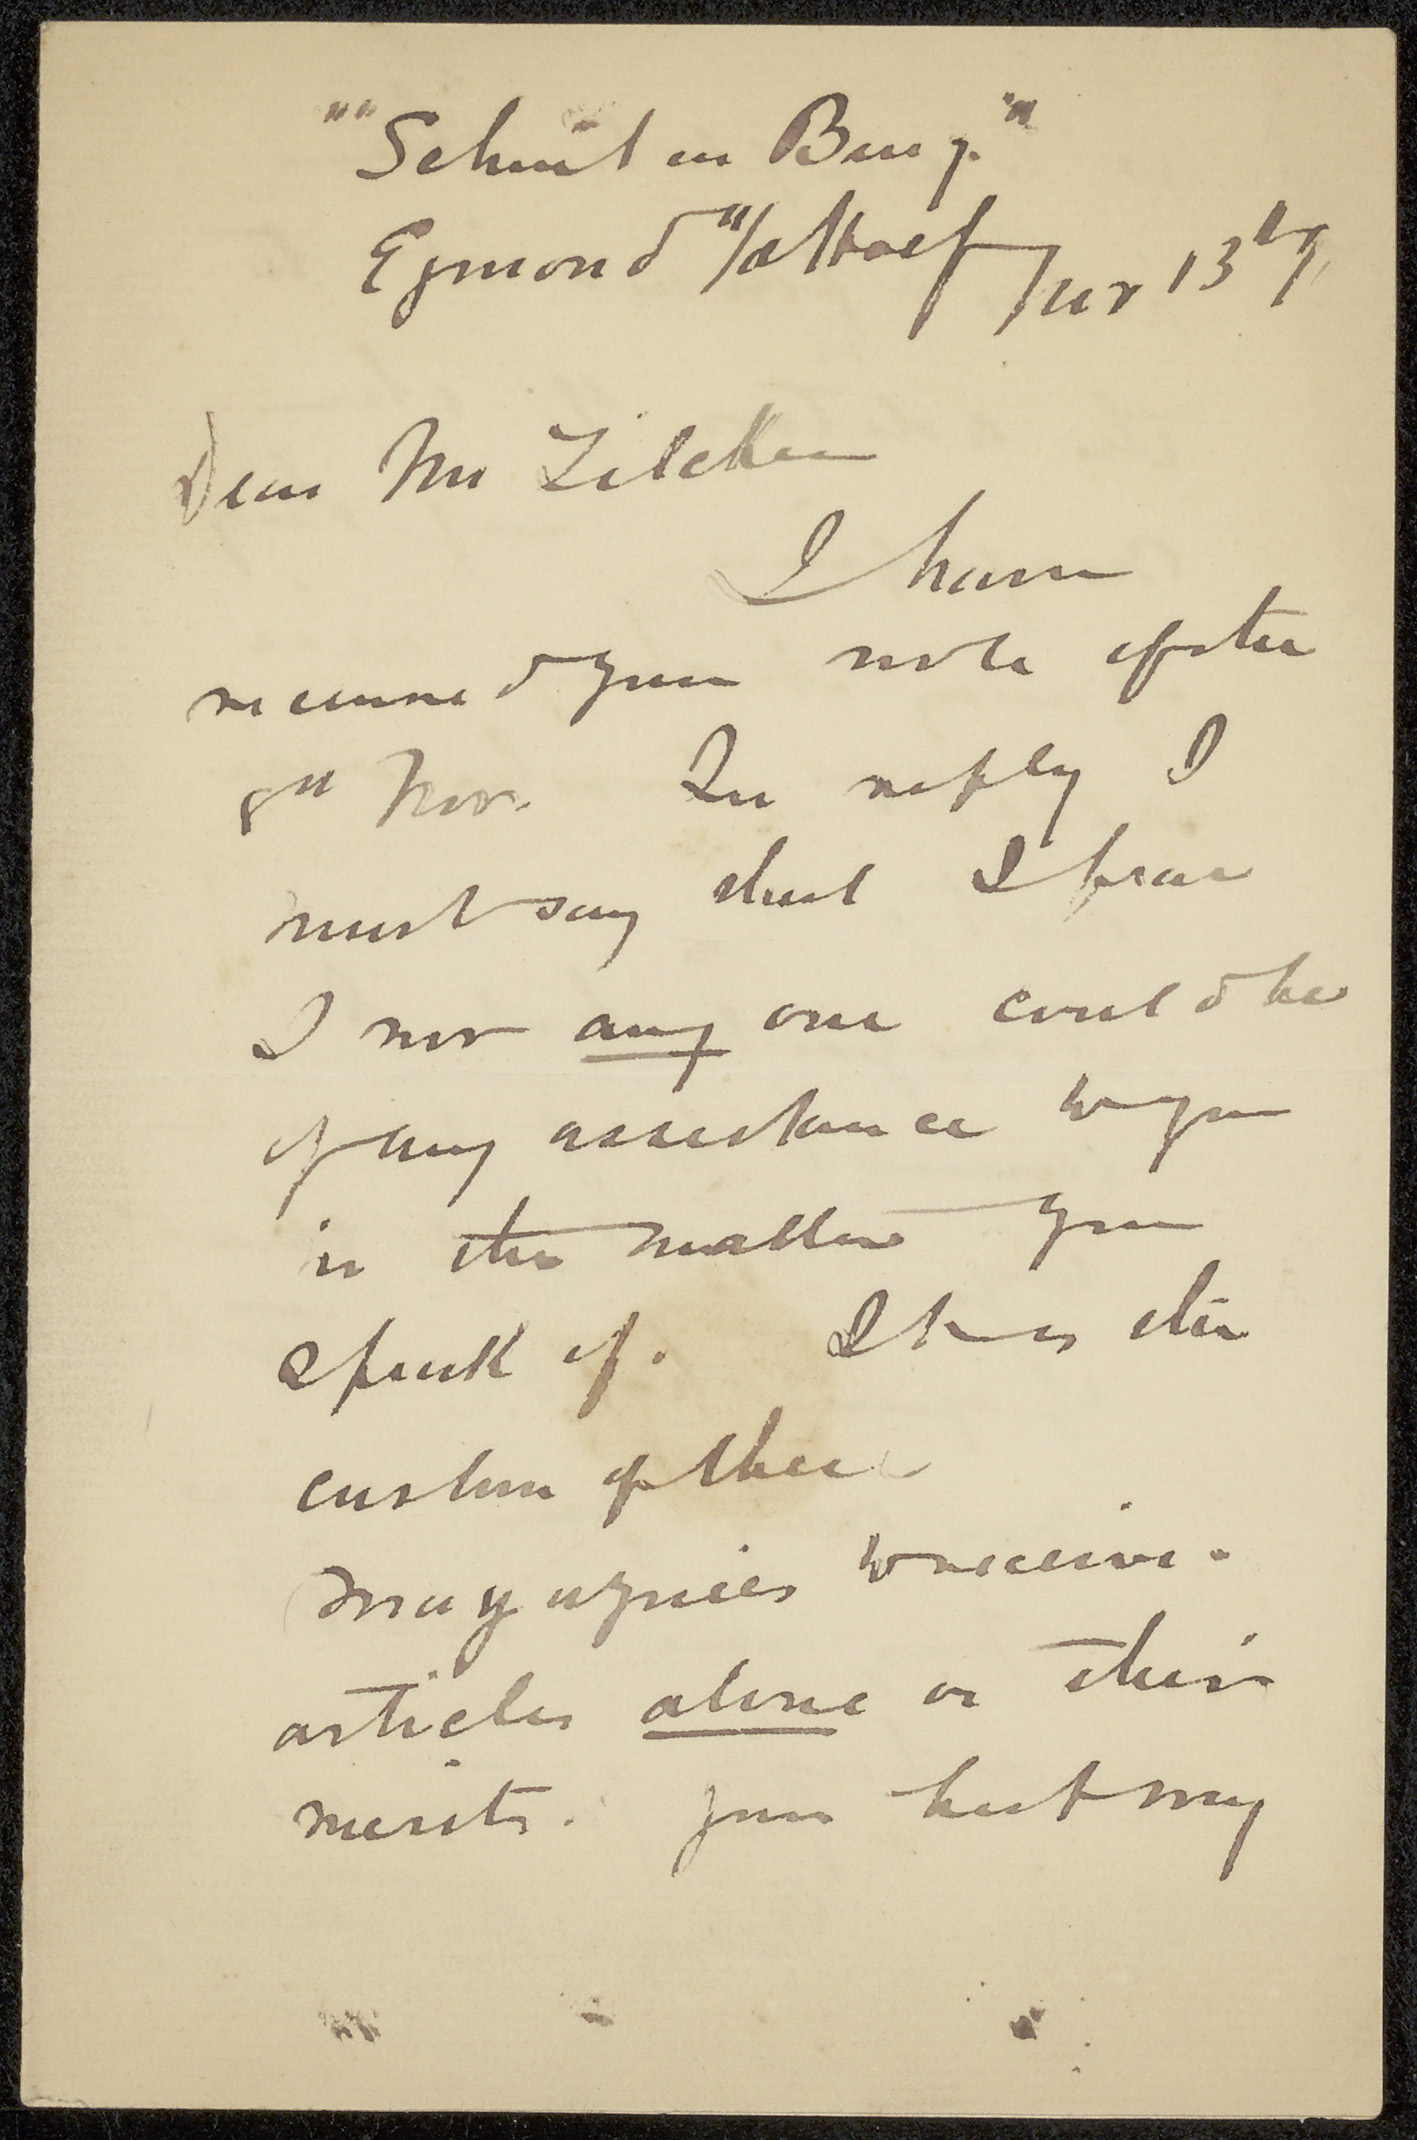 ""Schuit en Burg.""
Egmond a/d Hoef Nov 13th
Dear Mr Zilcken
I have
received your note of the
8th Nov. In reply I
must say that I fear
I nor any one could be
of any assistance to you
in the matter you
speak of. It is the
custom of these
magazines to receive
articles alone on their
merits. Your best way